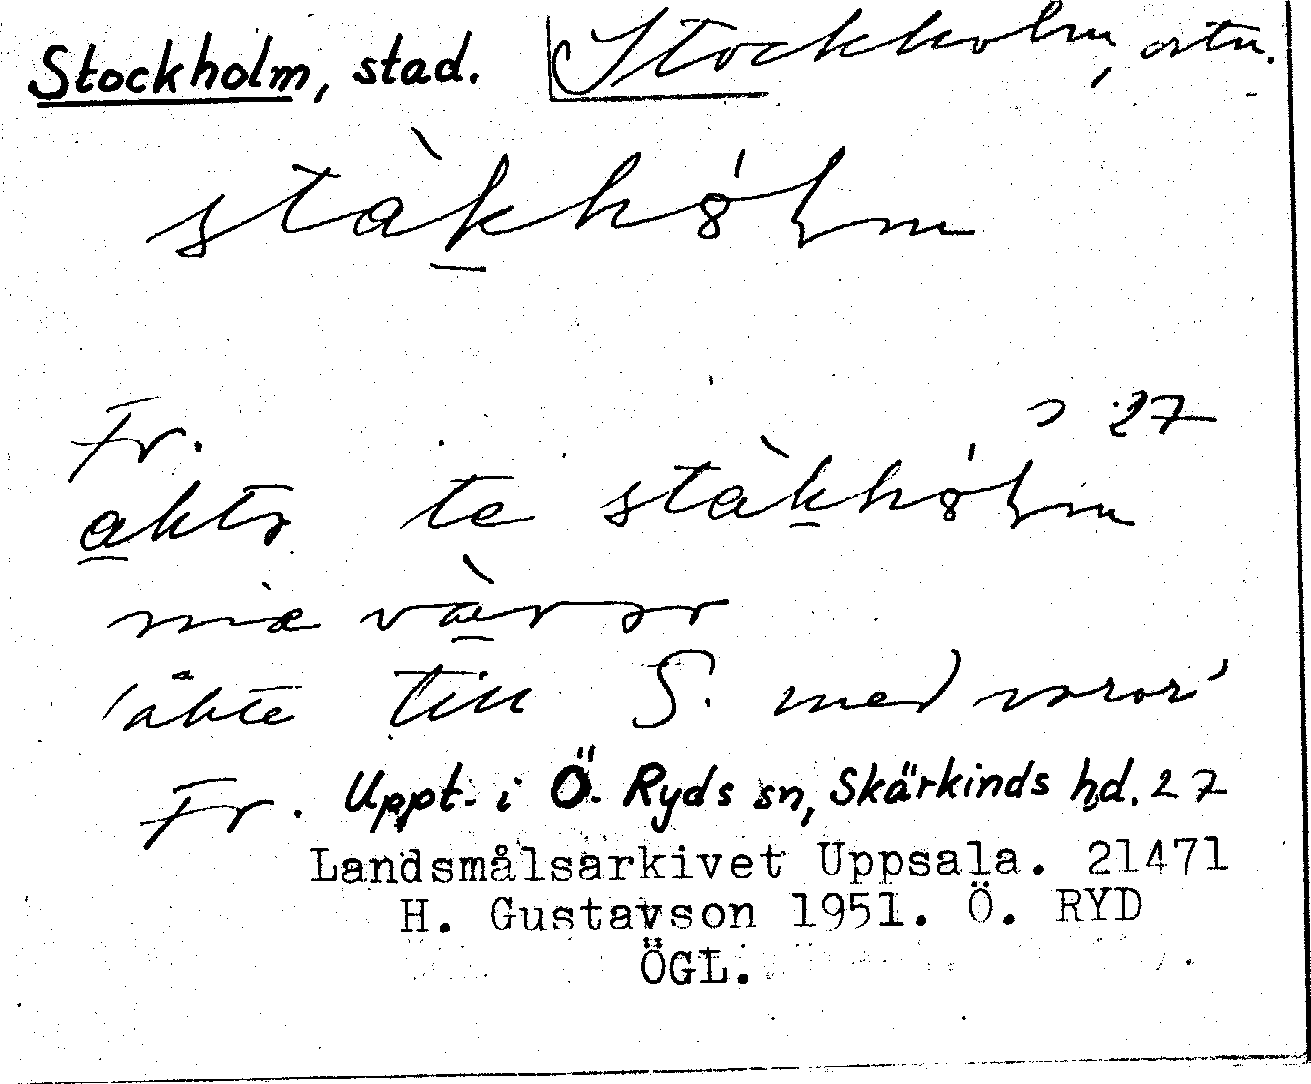 Stockholm, stad. Stockholm, ortn.
stàkhólm
Fr. 27
aktə te stàkhólm
mæ vàrər
'åkte till S. med varor'
Fr. Uppt. i Ö. Ryds sn, Skärkinds hd. 27
Landsmålsarkivet Uppsala. 21471
H. Gustavson 1951. Ö. RYD
ÖGL.